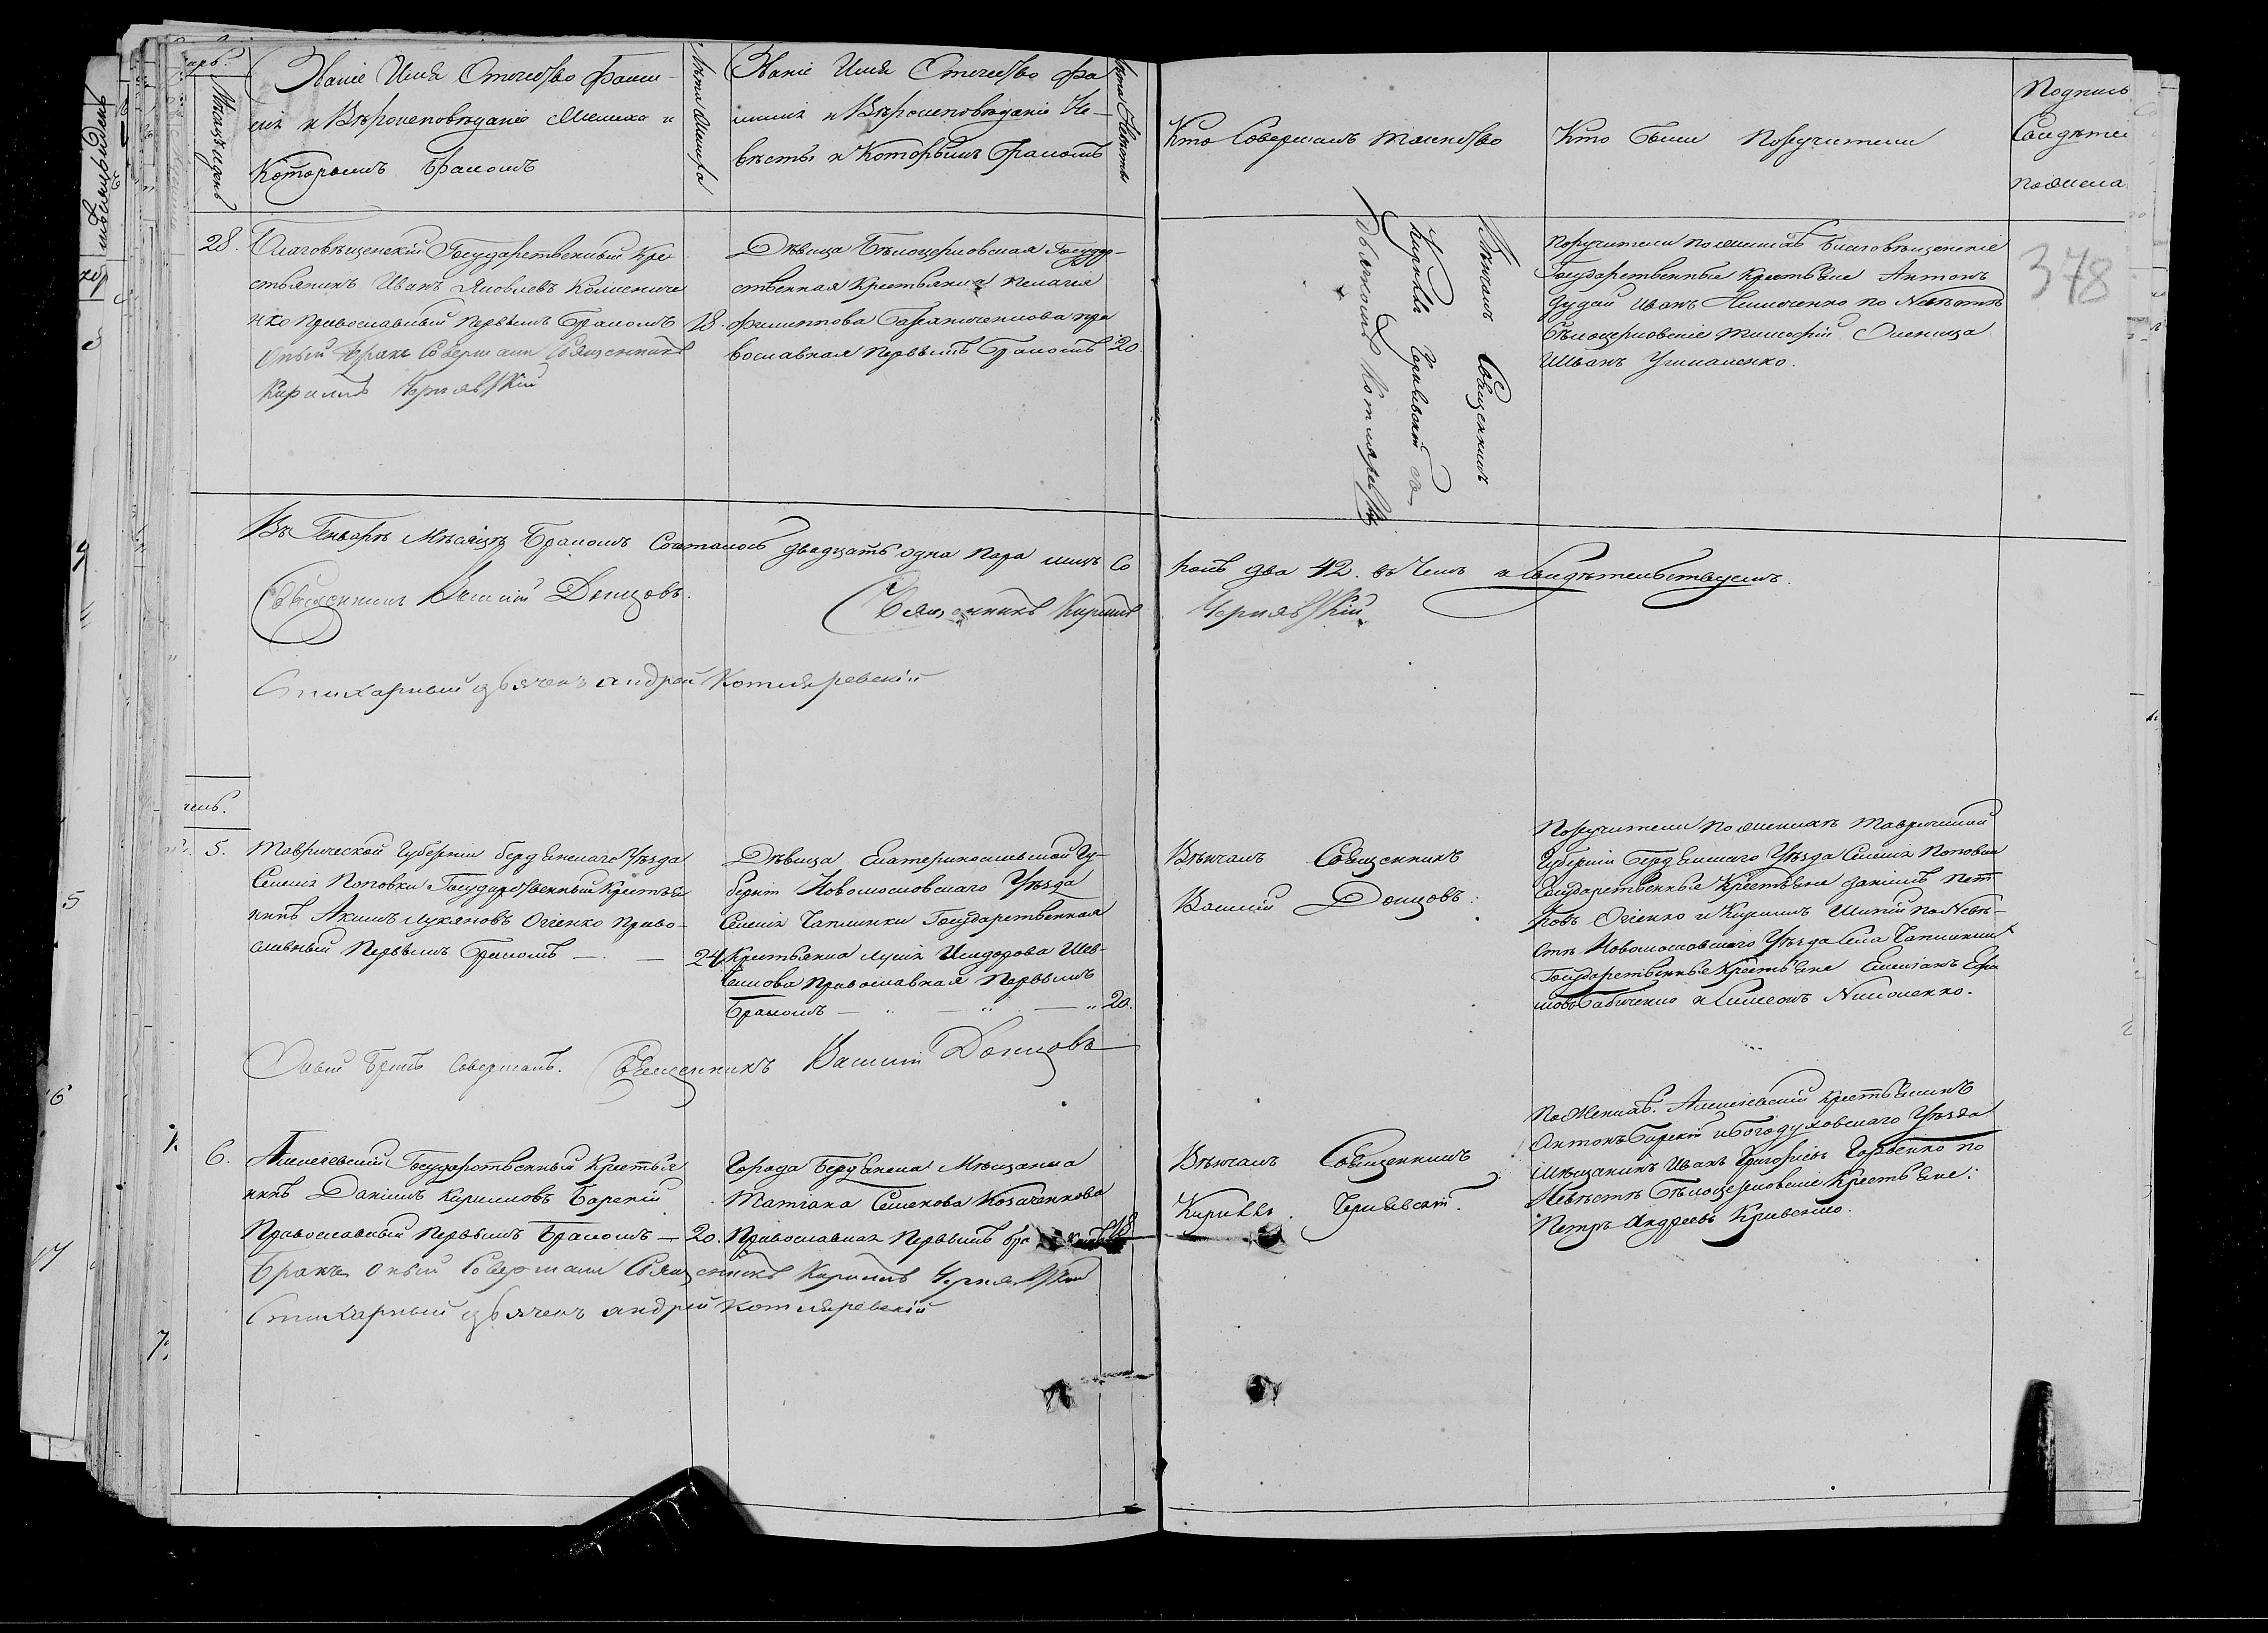 Мѣсяцъ и день
Званіе Имя Отечество Фами-
лія и Вѣроисповѣданіе Жениха и
Которымъ Бракомъ
Лѣта Жениха
Званіе Имя Отечество Фа
милія и Вѣроисповѣданіе Не-
вѣсты и Которымъ Бракомъ
Лѣта Невѣсты
Кто Совершалъ таинство
Кто Были Поручители
Подпись
Свидѣте
по желa
28.
Благовѣщенскій Государственный Кре
стьянинъ Иванъ Яковлевъ
нко Православный Первымъ Бракомъ
18.
Оный Бракъ Совершалъ Священникъ
Кирилъ Чернявскій
Дѣвица Бѣлоцерковская Государ-
ственная Крестьянка Пелагея
Филиппова пра
вославная Первымъ Бракомъ
20.
Вѣнчалъ Священникъ
Кирилъ Чернявскій съ
Дьячкомъ Котляревскимъ
Поручители по женихѣ Благовѣщенскіе
Государственные Крестьяне Антонъ
Дудай Иванъ по Невѣстѣ
Бѣлоцерковскіе Тимофій
Иванъ
378
Въ Генварѣ Мѣсяцѣ Бракомъ Сочталось двадцать одна пара лицъ Со
рокъ два 42. въ Чемъ и Свидѣтельствуемъ.
Священникъ Василій Донцовъ.
Священникъ Кирилъ Чернявскій
Стихарный дьячекъ Андрей Котляревскій
5.
Таврической Губерніи Бердянскаго Уѣзда
Селенія Поповки Государственный Крестья
нинъ Акимъ Лукяновъ Огіенко Право-
славный Первымъ Бракомъ — —
24
Дѣвица Екатеринославской Гу-
берніи Новомосковскаго Уѣзда
Селенія Чаплинки Государственная
Крестьянка Лукія Исидорова Шев-
Православная Первымъ
Бракомъ
20.
Вѣнчалъ Священникъ
Василій Донцовъ.
Поручители по женихѣ Таврической
Губерніи Бердянскаго Уѣзда Селенія Поповки
Государственные Крестьяне Даніилъ Пет
ровъ Огіенко и Кирилъ по Невѣ-
стѣ Новомосковскаго Уѣзда Села Чаплинки
Государственные Крестьяне Емеліанъ Ефи
мовъ Бабиченко и Симеонъ Николенко.
Оный Бракъ Совершалъ. Священникъ Василій Донцовъ
6.
Алексѣевскій Государственный Крестья
нинъ Даніилъ Кириловъ Барскій
Православный Первымъ Бракомъ —
20.
Города Бердянска Мѣщанка
Татіана Семенова Козаченкова
Православная Первымъ бра
18
Вѣнчалъ Священникъ
Кирилъ Чернявскій.
По Женихѣ. Алексѣевскій Крестьянинъ
Антонъ Барскій и Богодуховскаго Уѣзда
Мѣщанинъ Иванъ Григоріевъ Горбенко по
Невѣстѣ Бѣлоцерковскіе Крестьяне:
Петръ Андреевъ Кривенко.
Бракъ Оный Совершалъ Священникъ Кирилъ Чернявскій
Стихарный дьячекъ Андрей Котляревскій